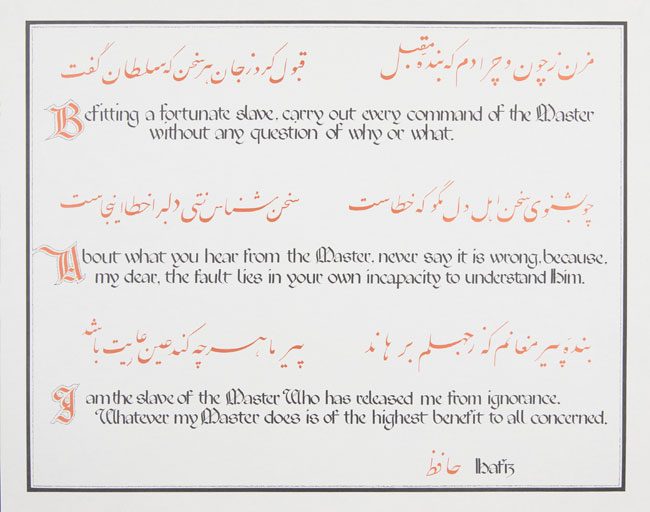 مزن زچون و چرا دم که بندهٔ مقبل قبول کرد زجان هر سخن که سلطان گفت
Befitting a fortunate slave, carry out every command of the Master
without any question of why or what.
چو بشنوی سخن اهل دل مگو که خطاست سخن شناس نئی دلبرا خطا اینجاست
About what you hear from the Master, never say it is wrong, because,
my dear, the fault lies in your own incapacity to understand Him.
بندهٔ پیر مغانم که زجهلم برهاند پیر ما هر چه کند عین رعایت باشد
I am the slave of the Master Who has released me from ignorance.
Whatever my Master does is of the highest benefit to all concerned.
حافظ Hafiz